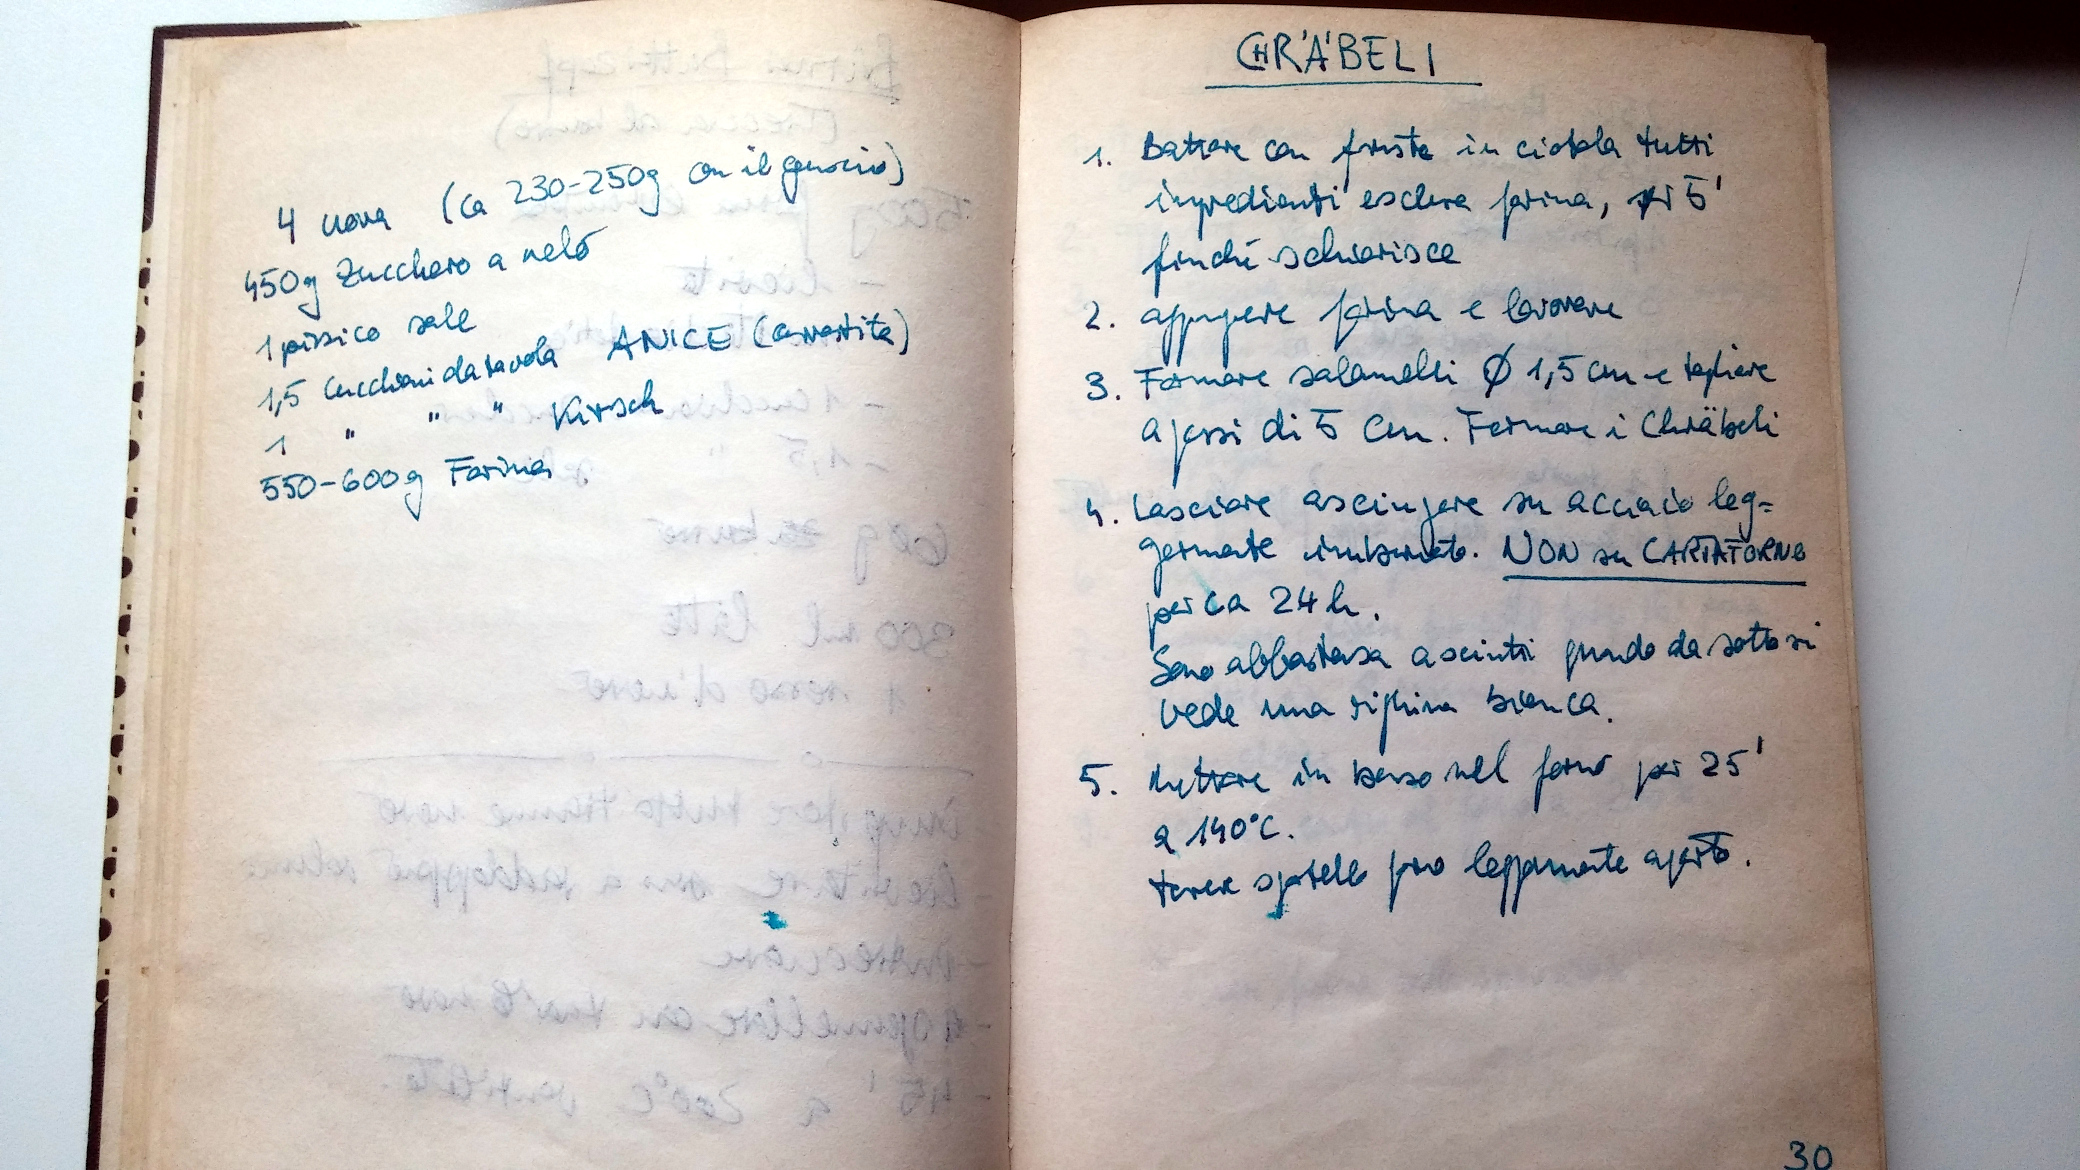 4 uova (ca 230-250g con il guscio)
450g Zucchero a velo
1 pizzico sale
1,5 cucchiai da tavola ANICE (arrostita)
1 " " Kirsch
550-600g Farina
CHRÄBELI
1. Battere con fruste in ciotola tutti
ingredienti esclusa farina, per 5'
finché schiarisce
2. aggiungere farina e lavorare
3. Formare salamelli Ø 1,5 cm e tagliare
a pezzi di 5 cm. Formare i Chräbeli
4. Lasciare asciugare su acciaio leg=
germente imburrato. NON su CARTA FORNO
per ca 24 h.
Sono abbastanza asciutti quando da sotto si
vede una righina bianca.
5. Mettere in basso nel forno per 25'
a 140°C.
tenere sportello forno leggermente aperto.
30